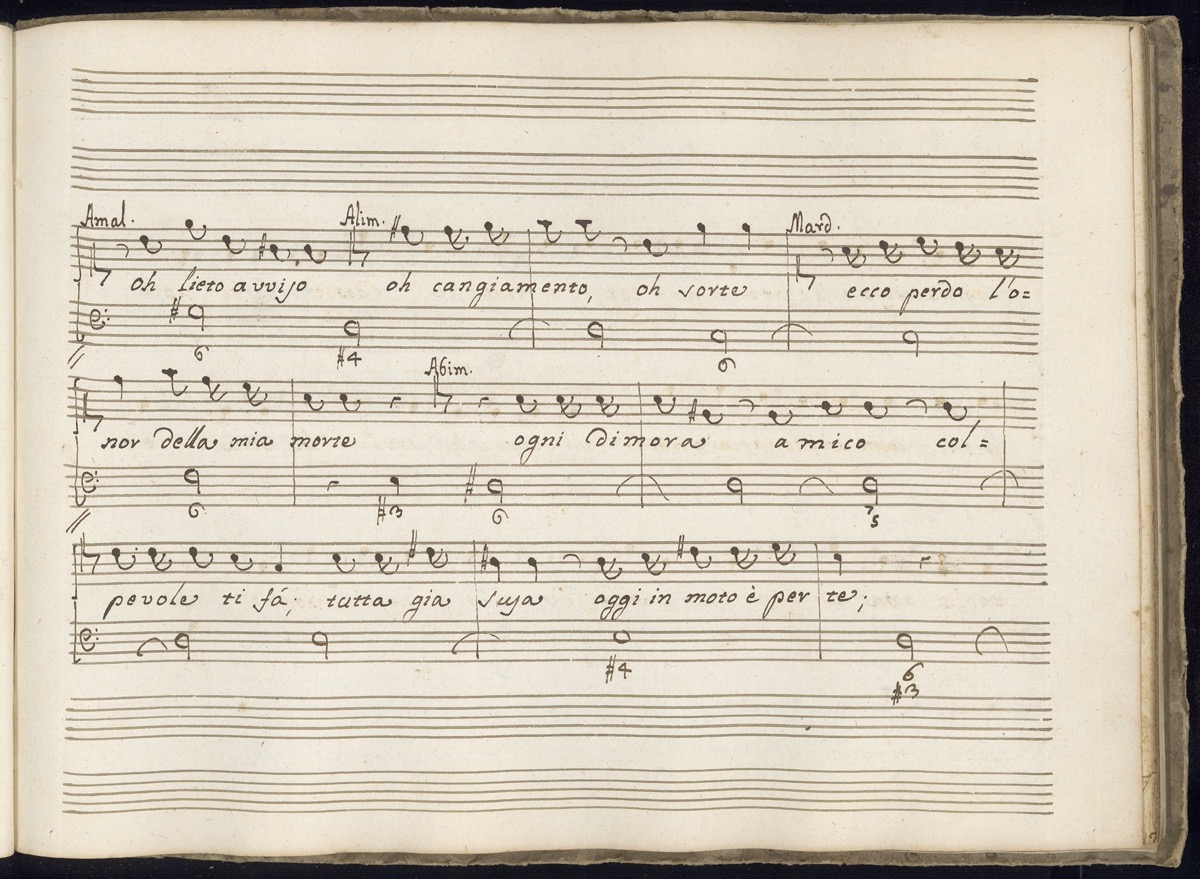 Amal. Alim. Mard.
oh lieto avviso oh cangiamento, oh sorte ecco perdo l'o=
6 #4 6
Abim.
nor della mia morte ogni dimora amico col=
6 #3 6 7 5
pevole ti fá; tutta gia suja oggi in moto è per te;
#4 6
#3